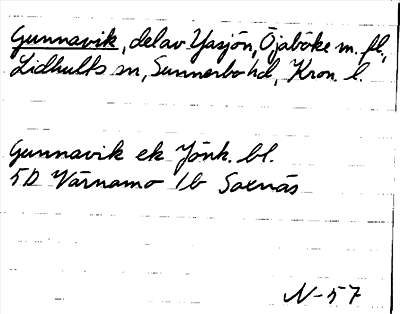 Gunnavik, del av Yasjön, Öjaböke m. fl.,
Lidhults sn, Sunnerbo hd, Kron. l.
Gunnavik ek Jönk. bl.
5D Värnamo 1b Saxnäs
N-57